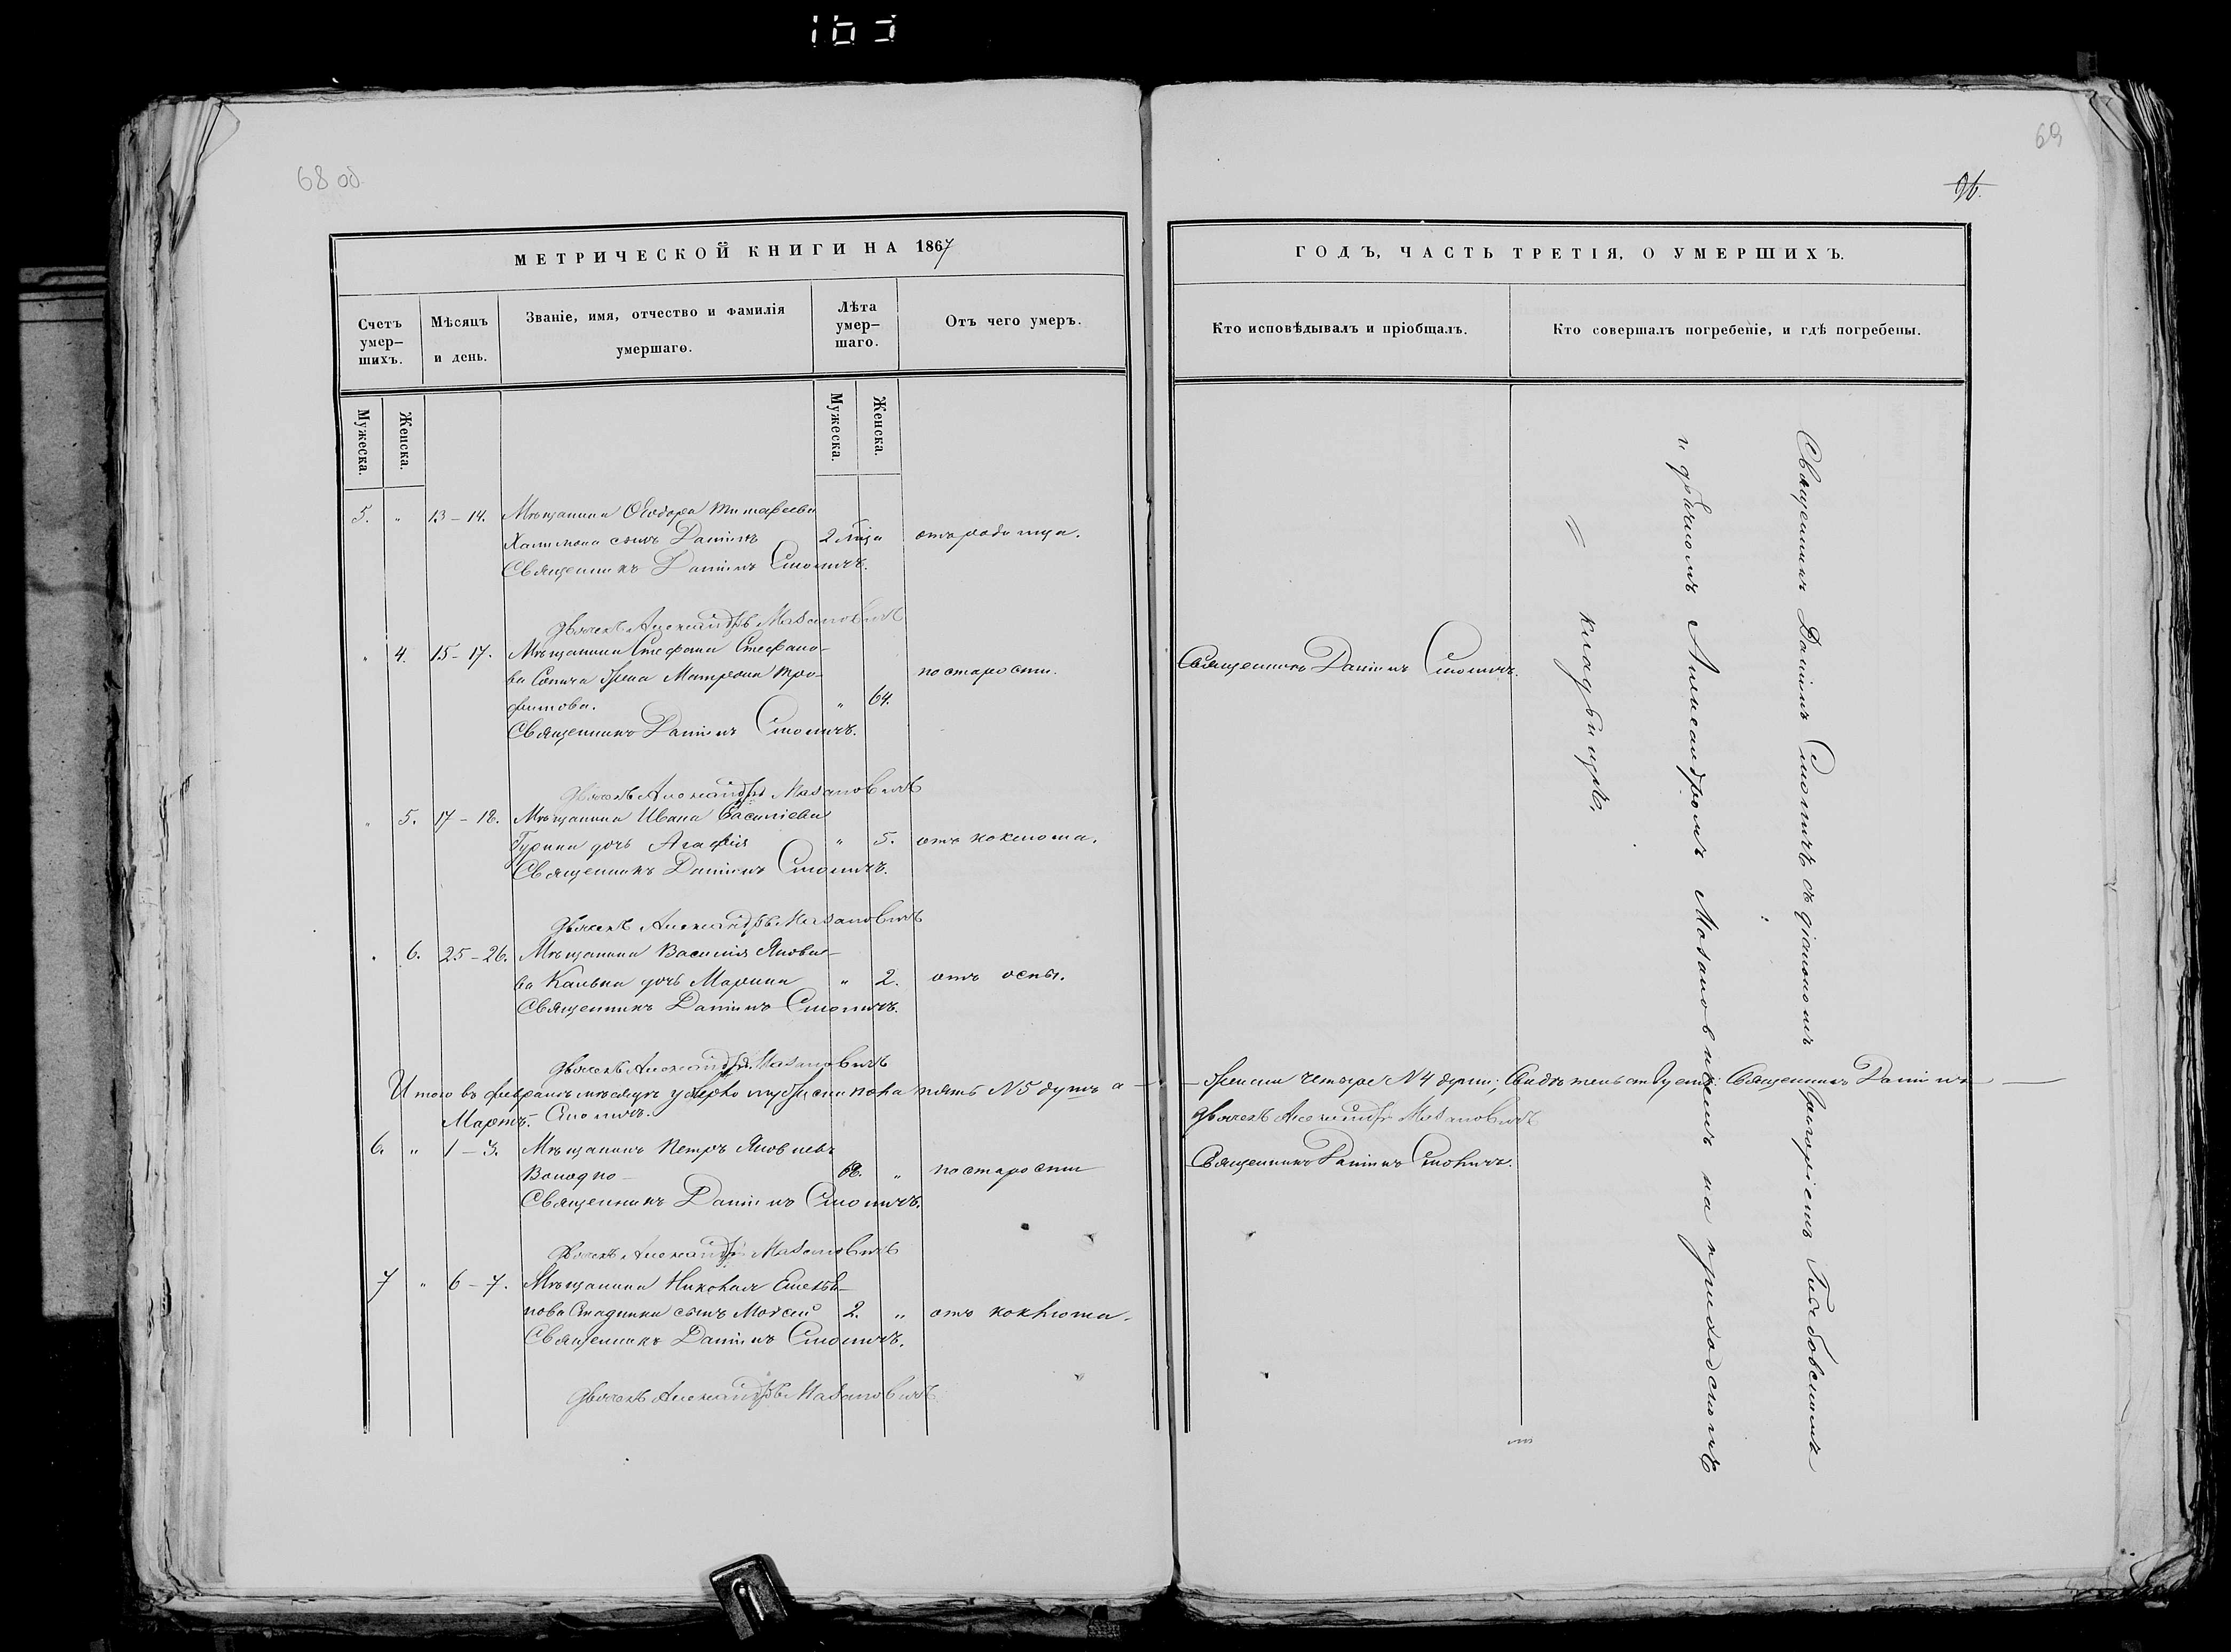 68 об.
МЕТРИЧЕСКОЙ КНИГИ НА 1867
Счетъ умер-шихъ.
Мѣсяцъ и день.
Званіе, имя, отчество и фамилія умершаго.
Лѣта умер-шаго.
Отъ чего умеръ.
Мужеска.
Женска.
Мужеска.
Женска.
5. " 13-14. Мѣщанина Ѳеодора Тимофеева
сынъ Даніилъ 2 " отъ
Священникъ Даніилъ Смоличъ.
Дьячекъ Александръ Мазановичъ
" 4. 15-17. Мѣщанина Стефана Стефано-
ва жена Матрона Тро-
фимова. " 64. по старости.
Священникъ Даніилъ Смоличъ.
Дьячекъ Александръ Мазановичъ
" 5. 17-18. Мѣщанина Ивана Василіева
Гурина дочь Агафія " 5. отъ коклюша.
Священникъ Даніилъ Смоличъ.
Дьячекъ Александръ Мазановичъ
" 6. 25-26. Мѣщанина Василія Яковле-
ва дочь Марина " 2. отъ оспы.
Священникъ Даніилъ Смоличъ.
Дьячекъ Александръ Мазановичъ
Итого въ февралѣ мѣсяцѣ умерло мужеска пола пять №5 душъ а
Смоличъ.
Мартъ.
6. " 1-3. Мѣщанинъ Петръ Яковлевъ
Володко 68. " по старости
Священникъ Даніилъ Смоличъ.
Дьячекъ Александръ Мазановичъ
7 " 6-7. Мѣщанина Николая Емелья-
нова сынъ Моисей 2. " отъ коклюша.
Священникъ Даніилъ Смоличъ.
Дьячекъ Александръ Мазановичъ
69
96.
ГОДЪ, ЧАСТЬ ТРЕТІЯ, О УМЕРШИХЪ.
Кто исповѣдывалъ и пріобщалъ.
Кто совершалъ погребеніе, и гдѣ погребены.
Священникъ Даніилъ Смоличъ.
женска четыре №4 души; Свидѣтельствуемъ: Священникъ Даніилъ
Дьячекъ Александръ Мазановичъ
Священникъ Даніилъ Смоличъ.
Священникъ Даніилъ Смоличъ съ діакономъ Григоріемъ
и дьячкомъ Александромъ Мазановичемъ на приходскомъ
кладбищѣ.